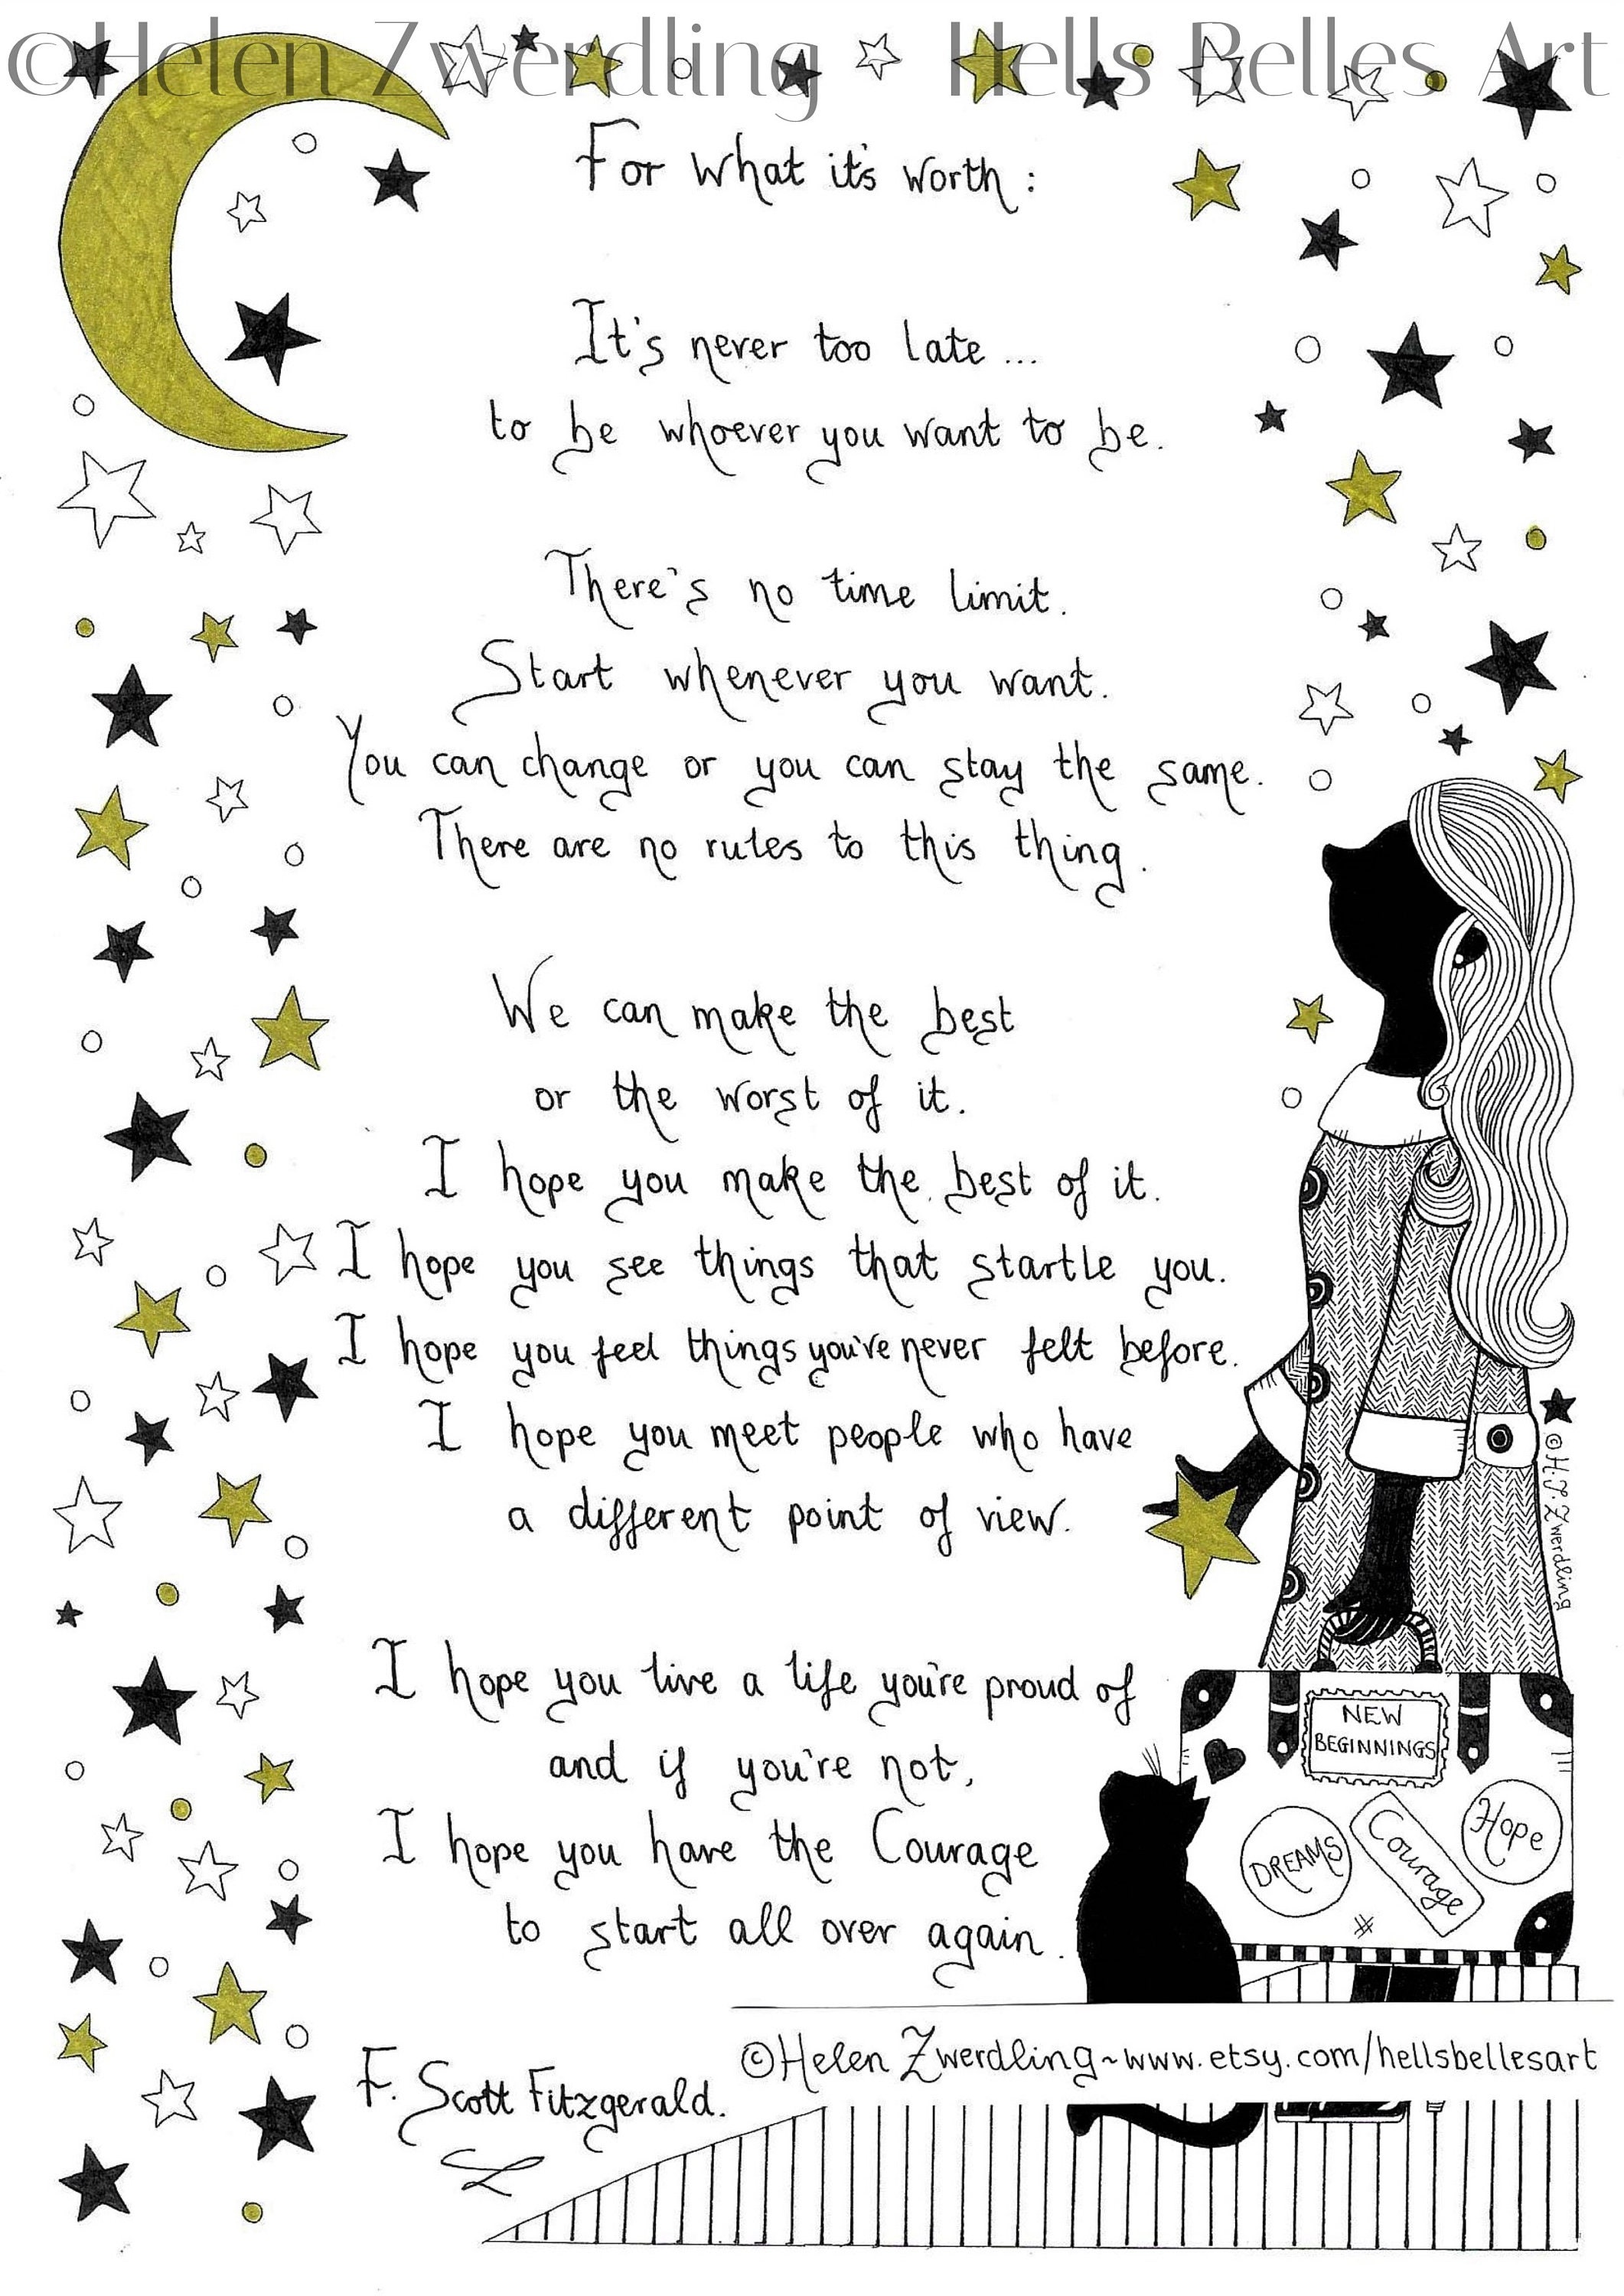 ©Helen Zwerdling Hells Belles Art
For what it's worth:
It's never too late...
to be whoever you want to be.
There's no time limit.
Start whenever you want.
You can change or you can stay the same.
There are no rules to this thing.
We can make the best
or the worst of it.
I hope you make the best of it.
I hope you see things that startle you.
I hope you feel things you've never felt before.
I hope you meet people who have
a different point of view.
©H.J.Zwerdling
I hope you live a life you're proud of
and if you're not,
I hope you have the Courage
to start all over again.
NEW
BEGINNINGS
DREAMS
Courage
Hope
©Helen Zwerdling~www.etsy.com/hellsbellesart
F. Scott Fitzgerald.